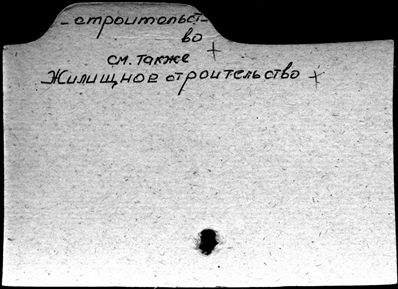 -строительст-
во
см. также
Жилищное строительство